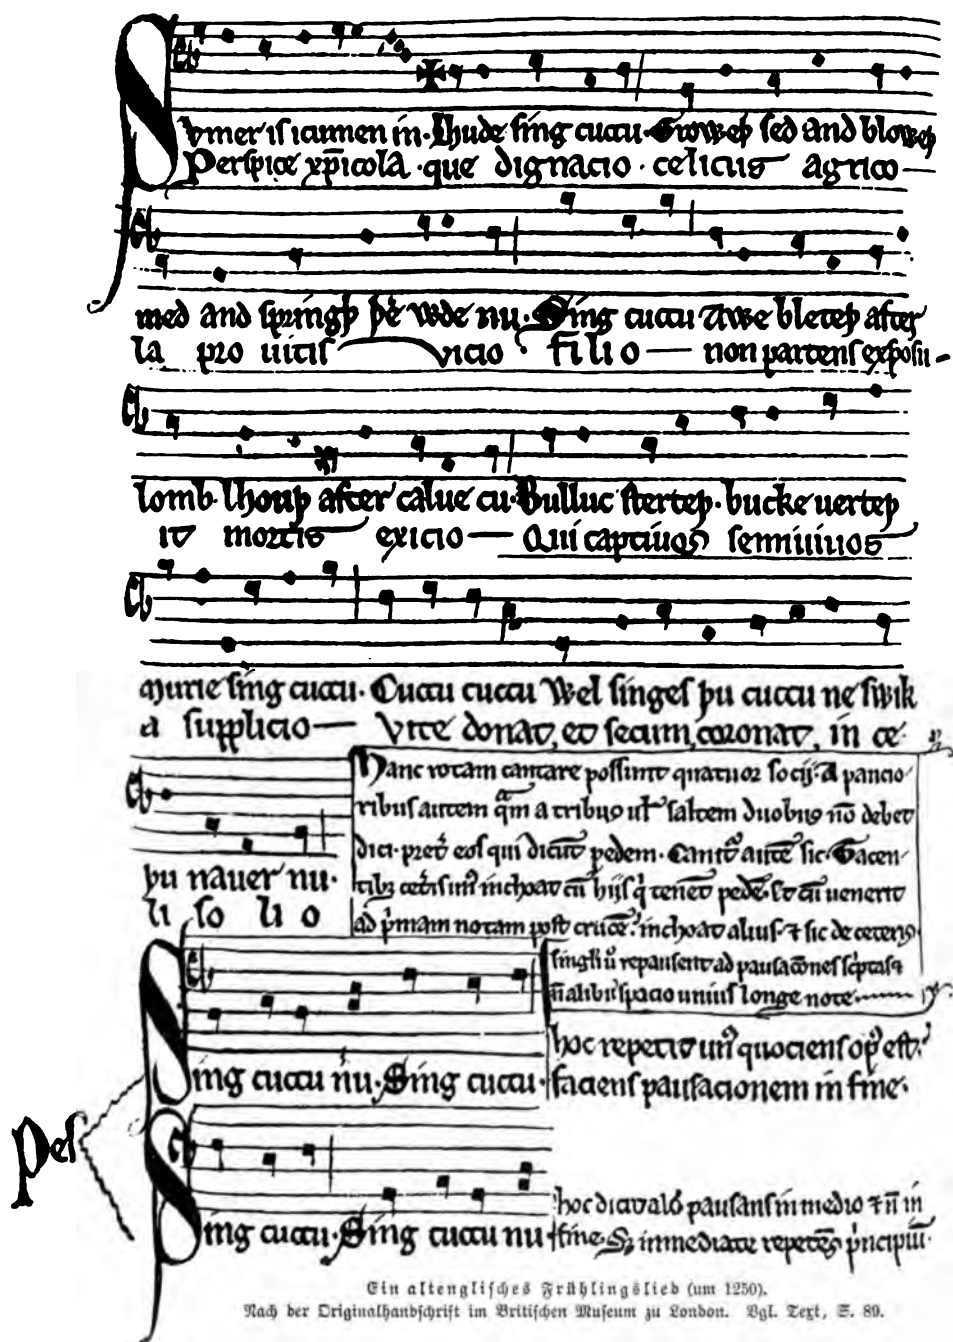 Sumer is icumen in· Lhude sing cuccu· Groweþ sed and bloweþ
Perspice xp̄icola · que dignacio · celicus agrico
med and springþ þe wde nu· Sing cuccu Awe bleteþ after
la pro uitis vicio · filio — non parcens exposu-
lomb· lhouþ after calue cu· Bulluc sterteþ· bucke uerteþ
it mortis exicio — Qui captiuos semiuiuos
Murie sing cuccu· Cuccu cuccu Wel singes þu cuccu ne swik
a supplicio — Vite donat, et secum coronat, in ce-
þu nauer nu·
li so li o
Hanc rotam cantare possunt quatuor socij· A paucio-
ribus autem q̄m a tribus uł saltem duobus nō debet
dici· pret̄ eos qui dicūt pedem· Canit̄ autē sic· Tacen-
tibȝ cet̄is un' inchoat cū hijs q' tenēt pedē· Et cū uenerit
ad p'mam notam post crucē· inchoat alius· ⁊ sic de ceteris·
singłi u' repausent ad pausacōnes sc'ptas ⁊
ñ alibi spacio unius longe note
Pes
Sing cuccu nu· Sing cuccu·
hoc repetit un' quociens op' est·
faciens pausacionem in fine·
Sing cuccu· Sing cuccu nu
hoc dicit alius pausans in medio ⁊ ñ in
fine· Sȝ inmediate repetens p'ncipiū·
Ein altenglisches Frühlingslied (um 1250).
Nach der Originalhandschrift im Britischen Museum zu London. Vgl. Text, S. 89.